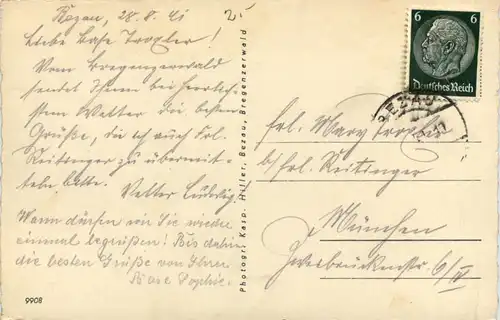 Bezau, 28.8.41
2.-
Liebe Base Troxler!
Vom Bregenzerwald
sendet Ihnen bei herrlich-
stem Wetter die besten
Grüße, die ich auch Frl.
Reitinger zu übermit-
teln bitte.
Vetter Ludwig.
Wann dürfen wir Sie wieder
einmal begrüßen! Bis dahin
die besten Grüße von Ihrer
Base Sophie.
9908
Photogr. Kasp. Hiller, Bezau, Bregenzerwald
6 6
Deutsches Reich
BEZAU
Frl. Mary Troxler
b/ Frl. Reitinger
München
Zweibrückenstr. 6/IV